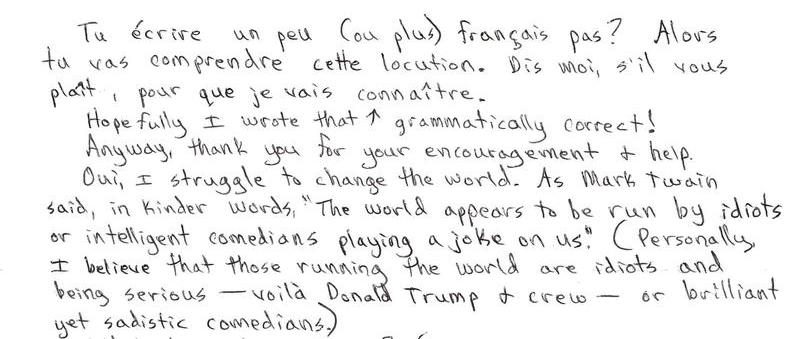 Tu écrire un peu (ou plus) français pas? Alors
tu vas comprendre cette locution. Dis moi, s'il vous
plaît, pour que je vais connaître.
Hopefully I wrote that ↑ grammatically correct!
Anyway, thank you for your encouragement & help.
Oui, I struggle to change the world. As Mark Twain
said, in kinder words, "The world appears to be run by idiots
or intelligent comedians playing a joke on us." (Personally,
I believe that those running the world are idiots and
being serious — voilà Donald Trump & crew — or brilliant
yet sadistic comedians.)